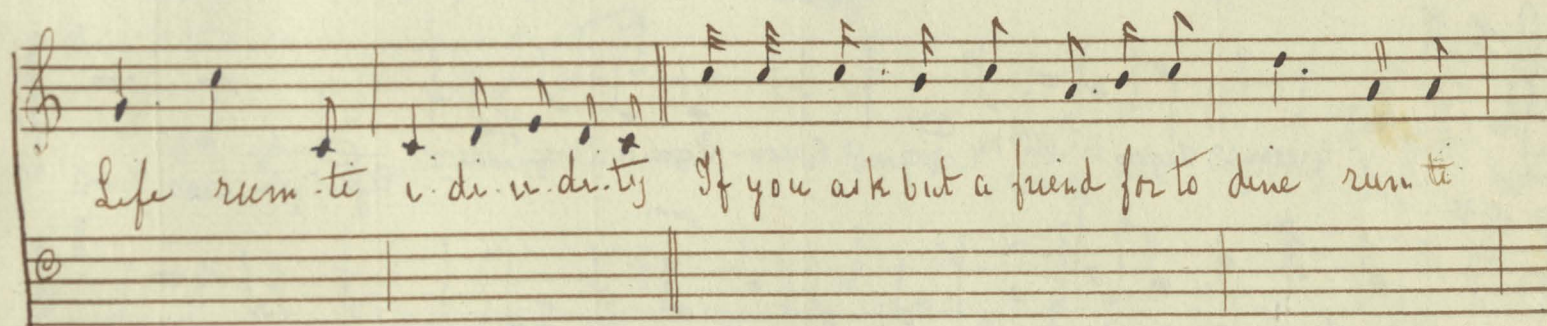 Life rum-te i-di-i-di-ty If you ask but a friend for to dine rum te